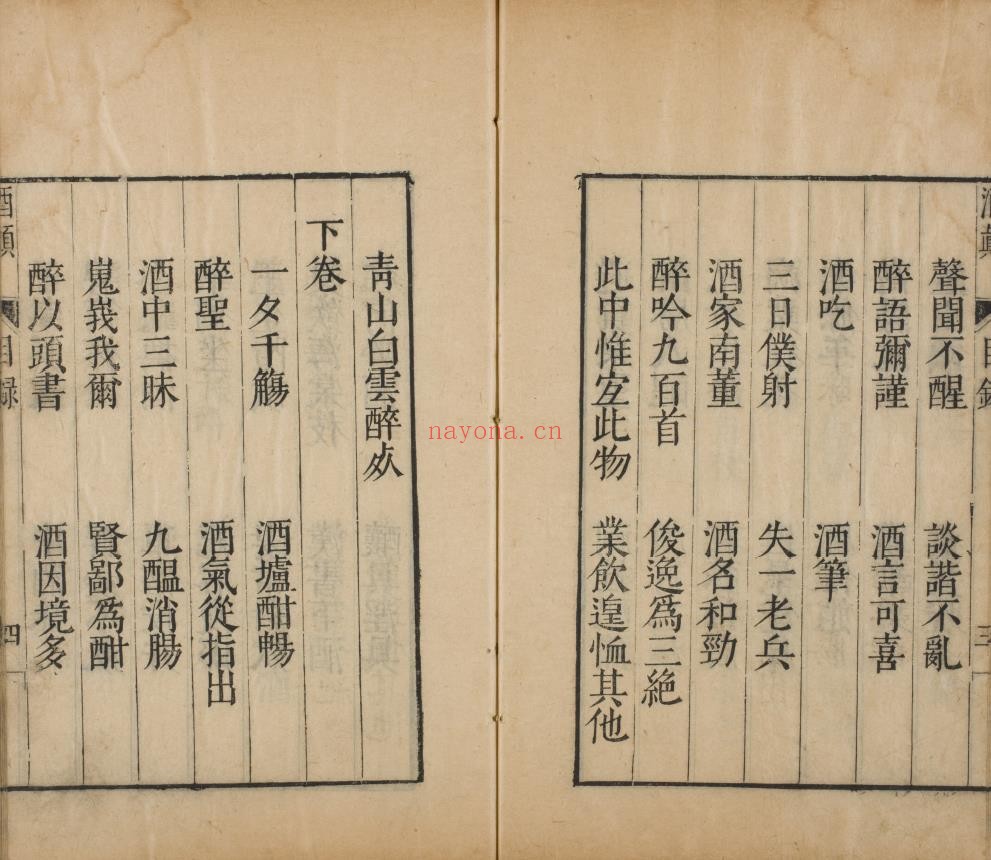 聲聞不醒 談諧不亂
醉語彌謹 酒言可喜
酒吃 酒筆
三日僕射 失一老兵
酒家南董 酒名和勁
醉吟九百首 俊逸爲三絶
此中惟宜此物 業飲遑恤其他
酒顛 目錄 三
青山白雲醉处
下卷
一夕千觴 酒壚酣暢
醉聖 酒氣從指出
酒中三昧 九醖消腸
嵬峩我爾 賢鄙爲酣
醉以頭書 酒因境多
酒顛 目録 四
nayona.cn